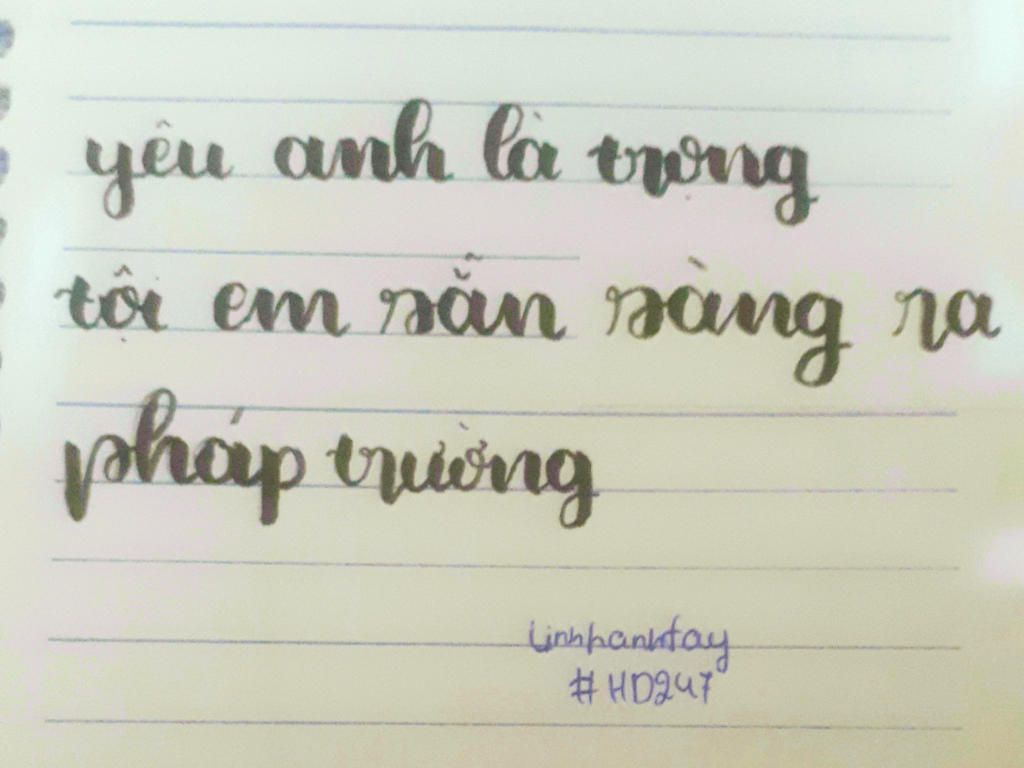 yêu anh là trọng
tội em sẵn sàng ra
pháp trường
Linhhanhtay
#HD247